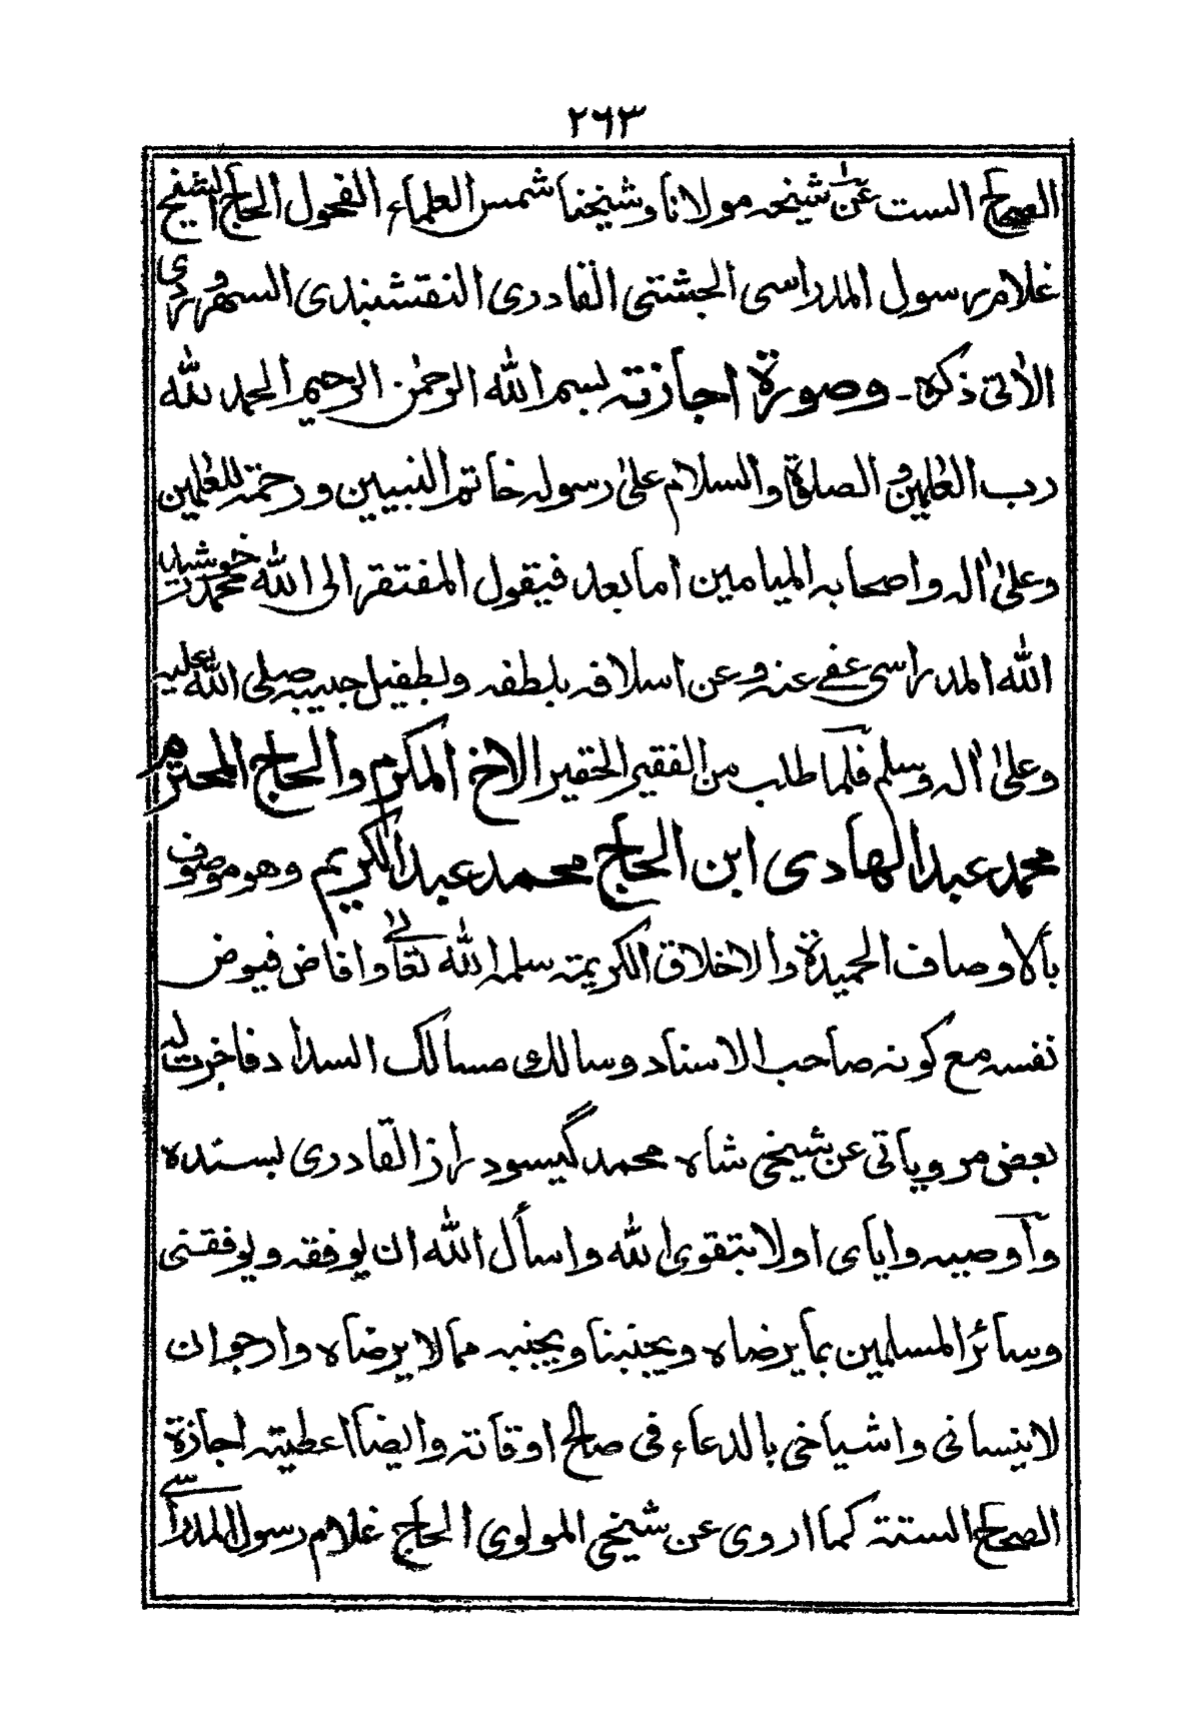 ٢٦٣
الصحاح الست عن شيخه مولانا وشيخنا شمس العلماء الفحول الحاج الشيخ
غلام رسول المدراسى الجشتى القادرى النقشبندى السهروردى
الأتى ذكره - وصورة اجازته بسم الله الرحمٰن الرحيم الحمد لله
رب العٰلمين و الصلوة والسلام علىٰ رسوله خاتم النبيين ورحمة للعٰلمين
وعلىٰ اٰله واصحابه الميامين اما بعد فيقول المفتقر الى الله محمد خوشتر
الله المدراسى عفى عنه وعن اسلافه بلطفه وبطفيل حبيبه صلى الله عليه
وعلىٰ اٰله وسلم فلما طلب من الفقير الحقير الاخ المكرم والحاج المحترم
محمد عبد الهادى ابن الحاج محمد عبد الكريم وهو موصوف
بالاوصاف الحميدة والاخلاق الكريمة سلمه الله تعالىٰ وافاض فيوض
نفسه مع كونه صاحب الاسناد وسالك مسالك السداد فاخرت له
بعض مروياتى عن شيخى شاه محمد گيسودراز القادرى بسنده
وأوصيه واياى اولا بتقوى الله واسأل الله ان يوفقه ويوفقنى
وسائر المسلمين بما يرضاه ويجنبنا ويجنبه مما لا يرضاه وارجو ان
لا ينسانى واشياخى بالدعاء فى صالح اوقاته وايضا اعطيته اجازة
الصحاح الستة كما اروى عن شيخى المولوى الحاج غلام رسول المدراسى